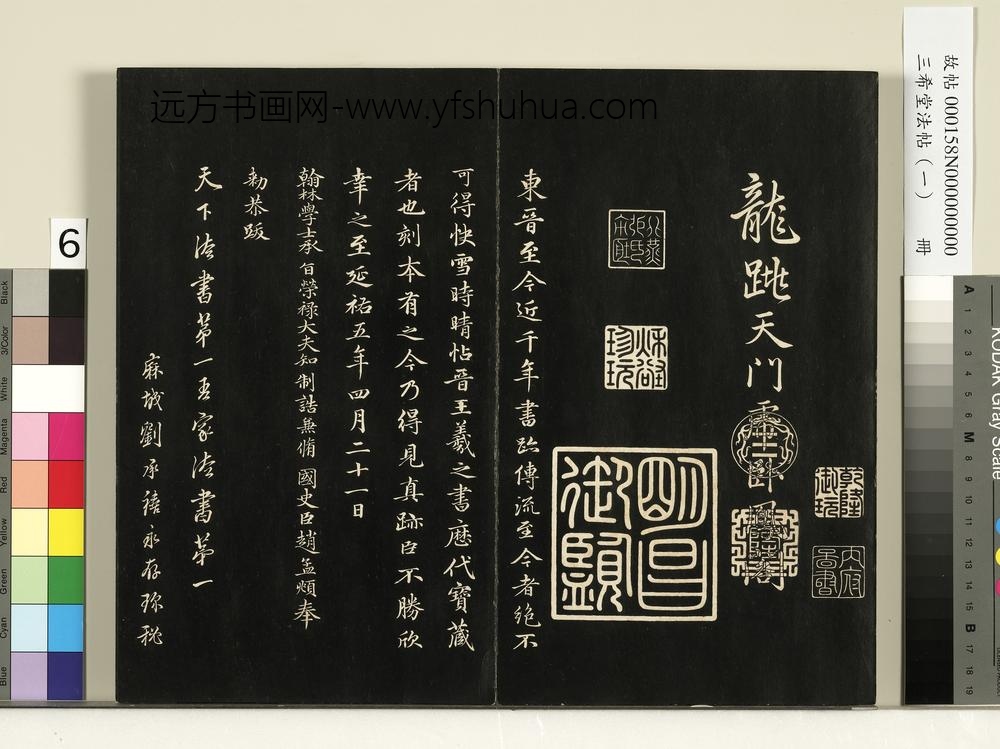 远方书画网-www.yfshuhua.com
故帖000158N000000000
三希堂法帖(一) 冊
龍跳天門虎卧鳳閣
乾隆御玩
珍玩
明昌御覽
東晉至今近千年書跡傳流至今者絕不
可得快雪時晴帖晉王羲之書歷代寶藏
者也刻本有之今乃得見真跡臣不勝欣
幸之至延祐五年四月二十一日
翰林學士承旨榮祿大夫知制誥兼脩國史臣趙孟頫奉
勑恭跋
天下法書第一吾家法書第一
麻城劉承禧永存珎秘
6
Black
3/Color
White
Magenta
Red
Yellow
Green
Cyan
Blue
KODAK Gray Scale
A 1 2 3 4 5 6 M 8 9 10 11 12 13 14 15 B 17 18 19